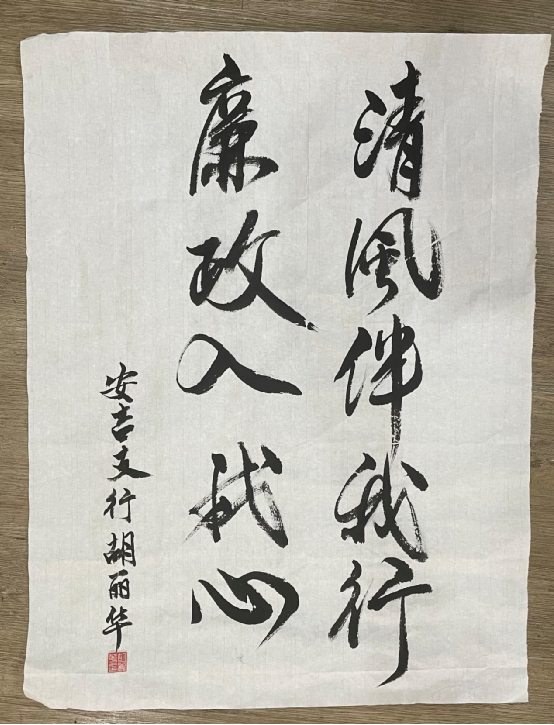 清风伴我行
廉政入我心
安吉支行胡丽华